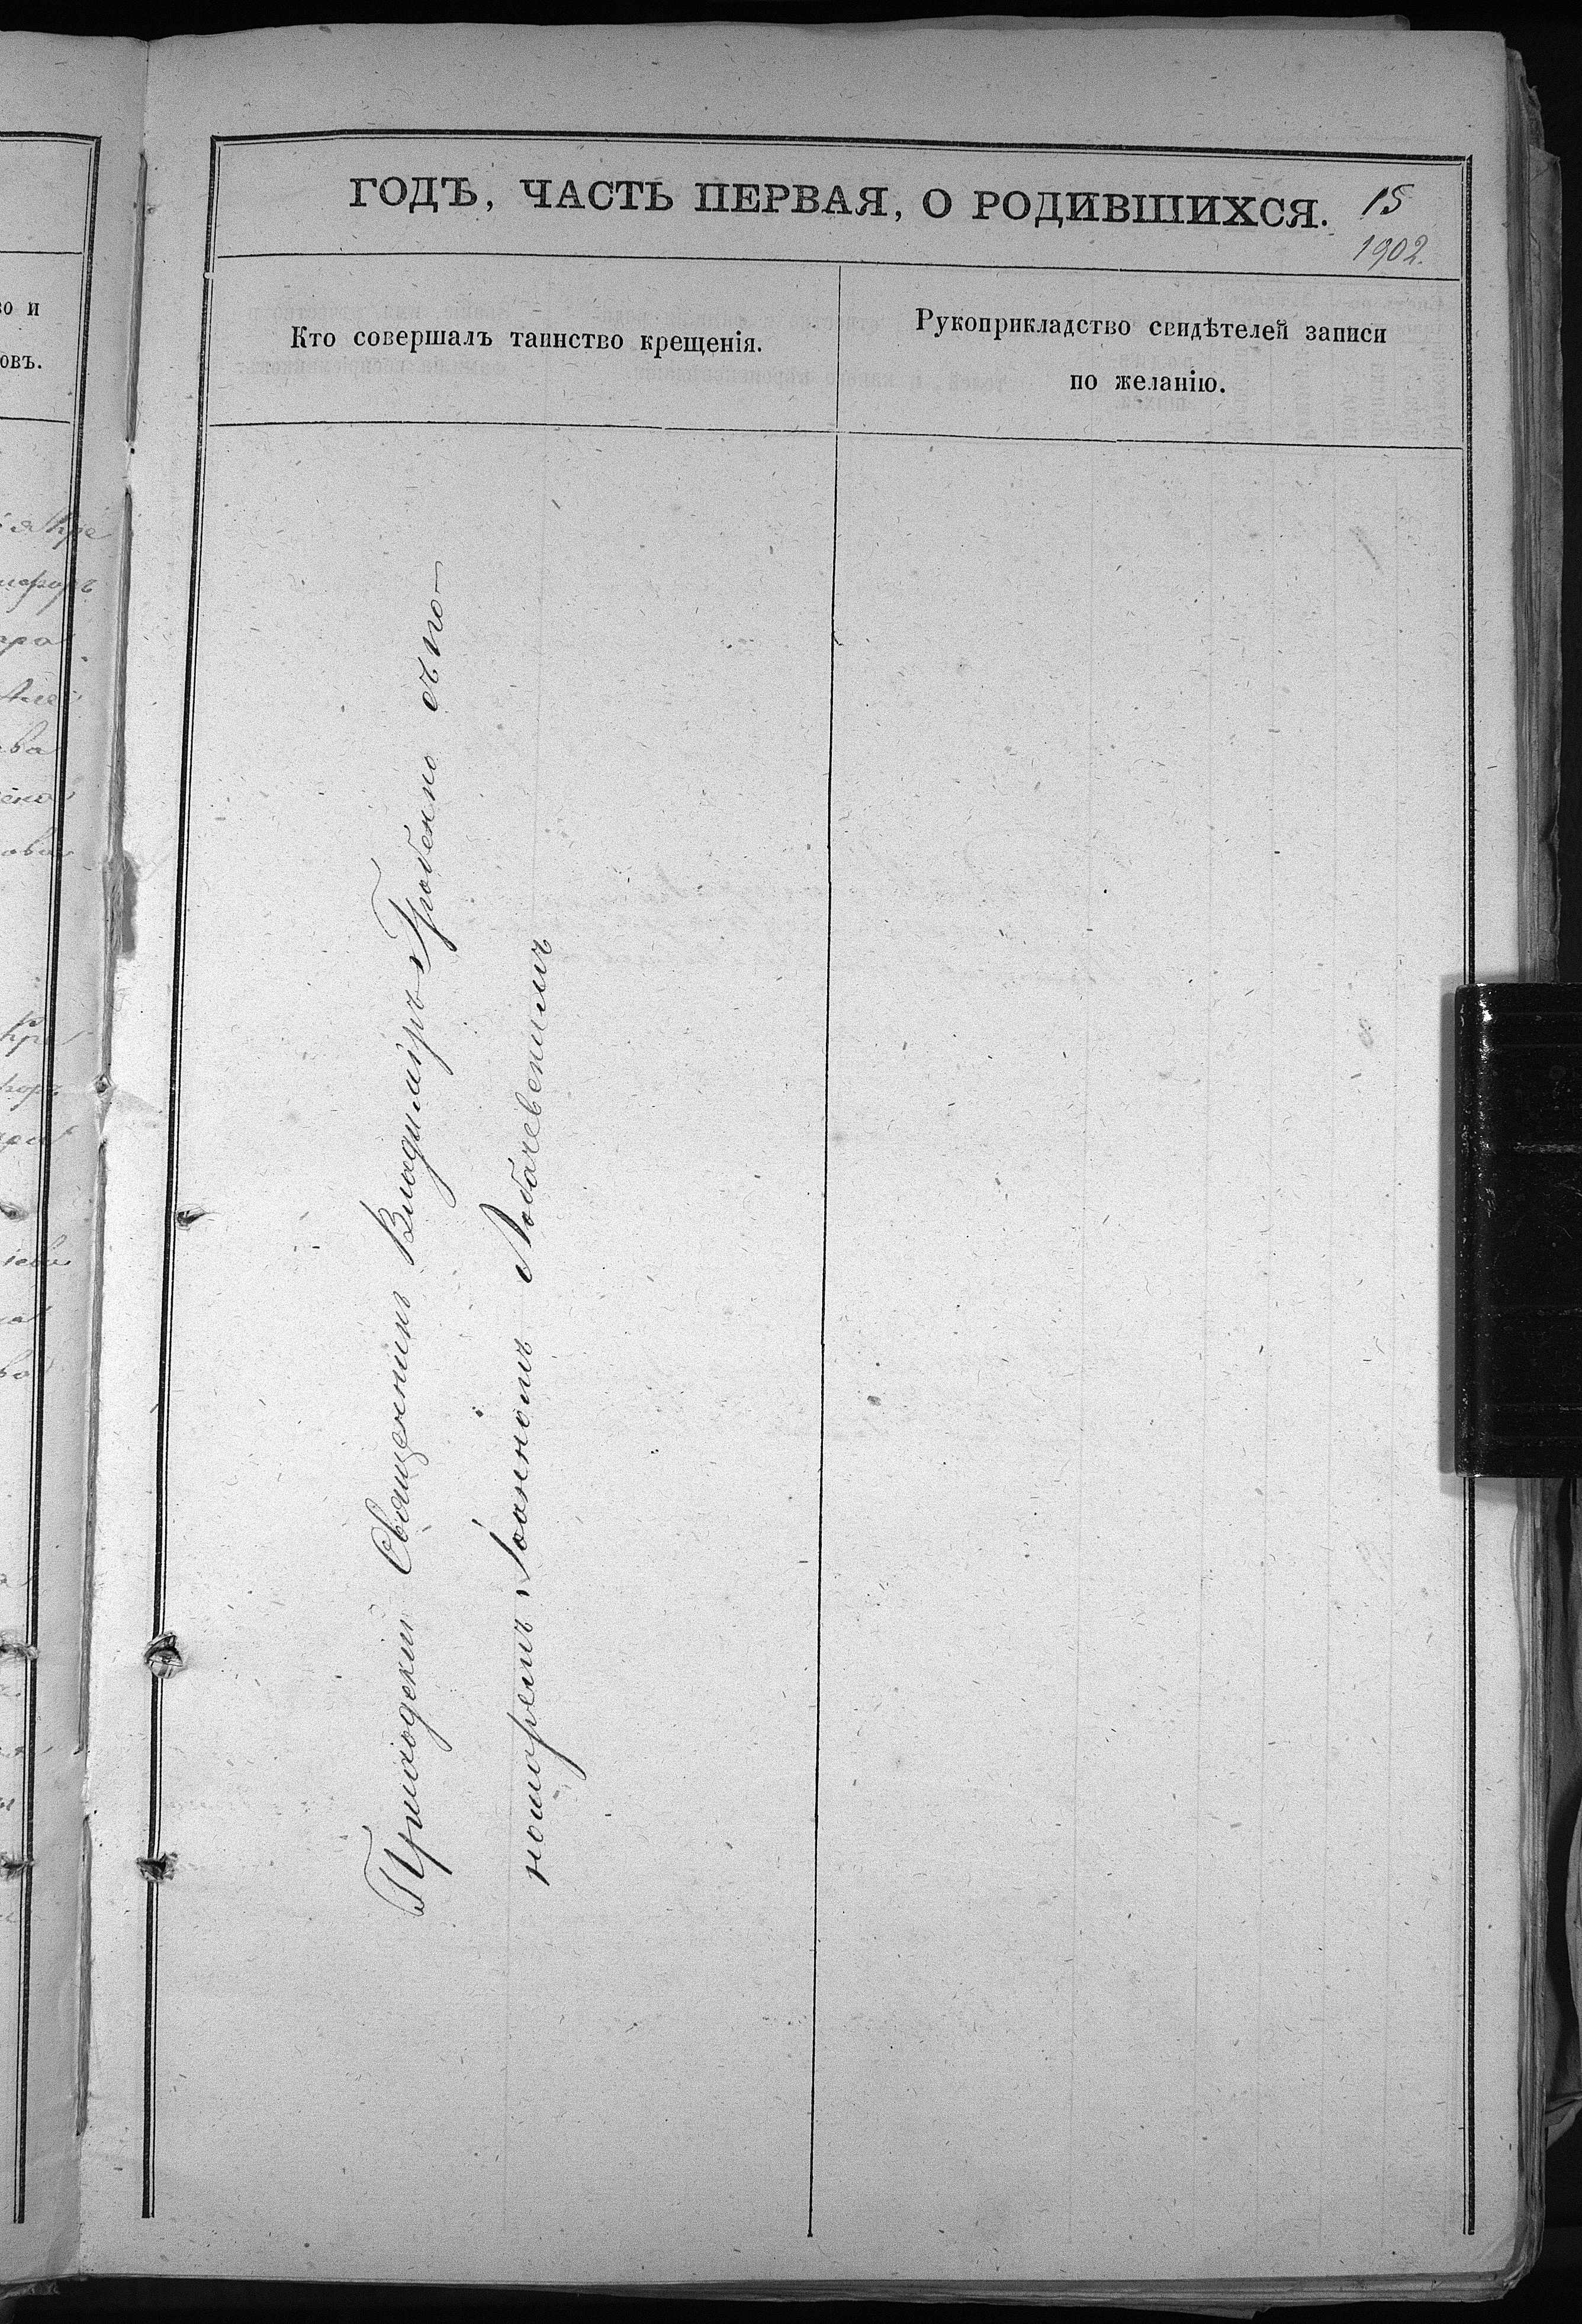 ГОДЪ, ЧАСТЬ ПЕРВАЯ, О РОДИВШИХСЯ.
15
1902.
Кто совершалъ таинство крещенія.
Рукоприкладство свидѣтелей записи
по желанію.
Приходскій Священникъ Владиміръ съ по-
номаремъ Іоанномъ Лобачевскимъ
о и
овъ.